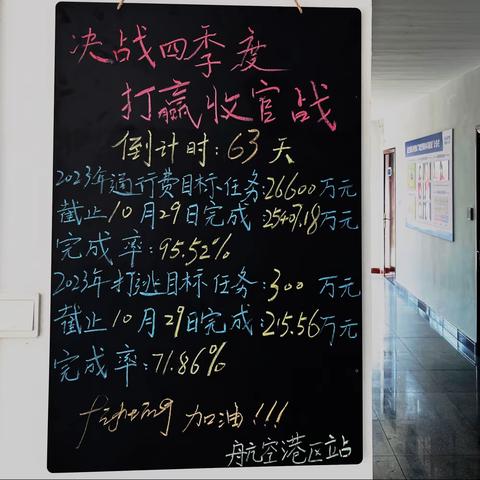 决战四季度
打赢收官战
倒计时:63天
2023年通行费目标任务:26600万元
截止10月29日完成:25407.18万元
完成率:95.52%
2023年打逃目标任务:300万元
截止10月29日完成:215.56万元
完成率:71.86%
加油!!!
航空港区站